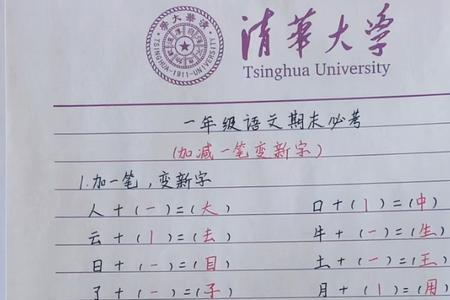 TSINGHUA UNIVERSITY
-1911-
清華大学
Tsinghua University
一年级语文期末必考
(加减一笔变新字)
1.加一笔,变新字
人+(一)=(大) 口+(丨)=(中)
云+(丨)=(去) 牛+(一)=(生)
日+(一)=(目) 土+(一)=(王)
了+(一)=(子) 月+(丨)=(用)